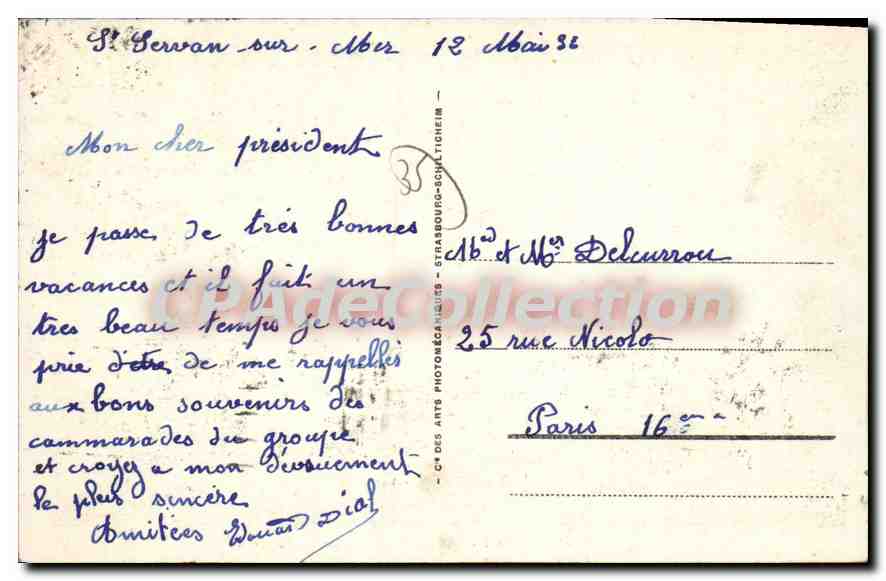 St Servan-sur-Mer 12 Mai 36
Mon cher président
je passe de très bonnes
vacances et il fait un
tres beau temps je vous
prie d'etre de me rappelles
aux bons souvenirs des
cammarades du groupe
et croyez a mon dévouement
le plus sincère
Amitées Edouard Dial
35
- Cie DES ARTS PHOTOMÉCANIQUES - STRASBOURG-SCHILTIGHEIM -
et Mer Delcurrou
25 rue Nicolo
Paris 16eme
CPAdeCollection